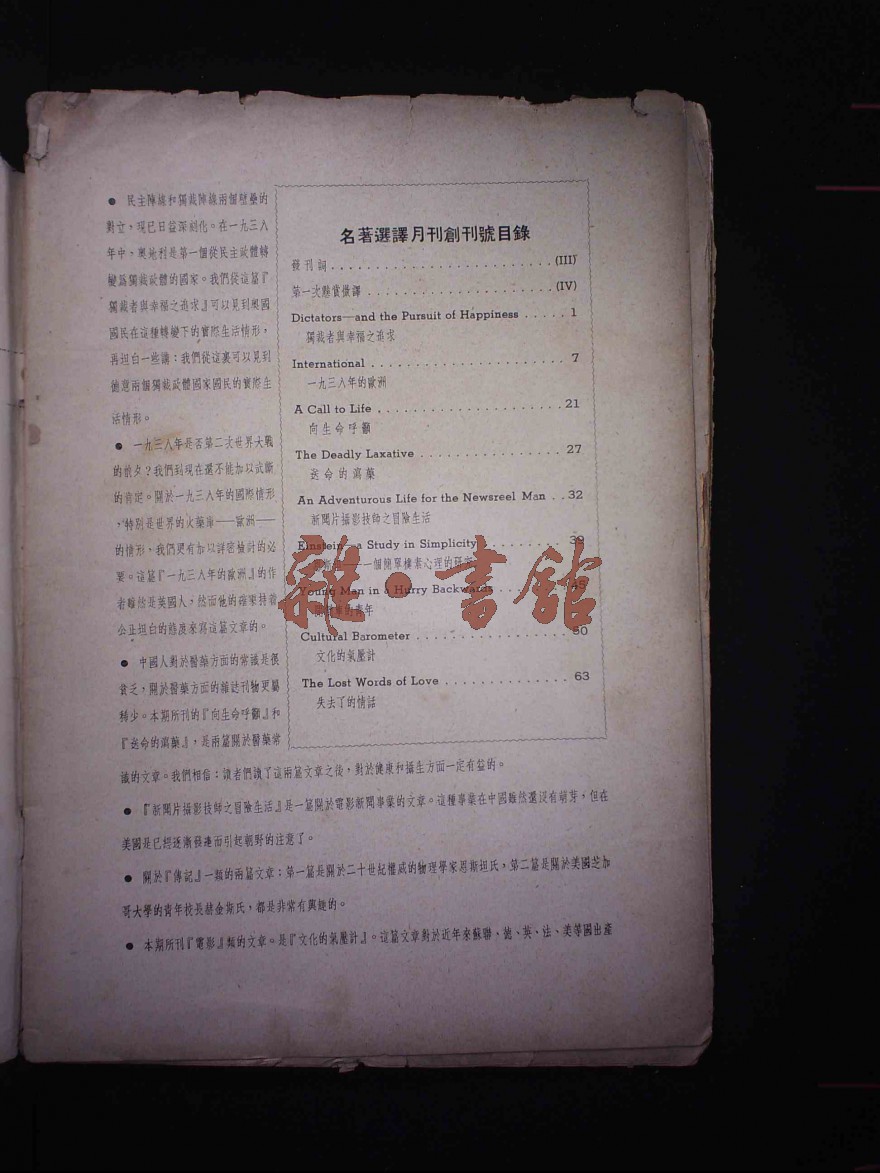 ● 民主陣線和獨裁陣線兩個壁壘的
對立,現已日益深刻化。在一九三八
年中,奧地利是第一個從民主政體轉
變爲獨裁政體的國家。我們從這篇『
獨裁者與幸福之追求』可以見到奧國
國民在這種轉變下的實際生活情形,
再坦白一些講:我們從這裏可以見到
德意兩個獨裁政體國家國民的實際生
活情形。
● 一九三八年是否第二次世界大戰
的前夕?我們到現在還不能加以武斷
的肯定。關於一九三八年的國際情形
,特別是世界的火藥庫——歐洲——
的情形,我們更有加以詳密檢討的必
要。這篇『一九三八年的歐洲』的作
者雖然是英國人,然而他的確秉持着
公正坦白的態度來寫這篇文章的。
● 中國人對於醫藥方面的常識是很
貧乏,關於醫藥方面的雜誌刊物更屬
稀少。本期所刊的『向生命呼籲』和
『送命的瀉藥』,是兩篇關於醫藥常
識的文章。我們相信:讀者們讀了這兩篇文章之後,對於健康和攝生方面一定有益的。
● 『新聞片攝影技師之冒險生活』是一篇關於電影新聞事業的文章。這種事業在中國雖然還沒有萌芽,但在
美國是已經逐漸發達而引起朝野的注意了。
● 關於『傳記』一類的兩篇文章:第一篇是關於二十世紀權威的物理學家恩斯坦氏,第二篇是關於美國芝加
哥大學的青年校長赫金斯氏,都是非常有興趣的。
● 本期所刊『電影』類的文章。是『文化的氣壓計』。這篇文章對於近年來蘇聯、德、英、法、美等國出產
名著選譯月刊創刊號目錄
發刊詞 . . . . . . . . . . . . . . . . . . . . . . . . (III)
第一次懸賞徵譯 . . . . . . . . . . . . . . . . . . . . (IV)
Dictators—and the Pursuit of Happiness . . . . . 1
獨裁者與幸福之追求
International . . . . . . . . . . . . . . . . . . . . . 7
一九三八年的歐洲
A Call to Life . . . . . . . . . . . . . . . . . . . . 21
向生命呼籲
The Deadly Laxative . . . . . . . . . . . . . . . . 27
送命的瀉藥
An Adventurous Life for the Newsreel Man . . 32
新聞片攝影技師之冒險生活
Einstein—a Study in Simplicity . . . . . . . . . 39
——一個簡單樸素心理的研究
Young Man in a Hurry Backwards . . . . . . . 45
的青年
Cultural Barometer . . . . . . . . . . . . . . . . . 50
文化的氣壓計
The Lost Words of Love . . . . . . . . . . . . . . 63
失去了的情話
雜·書館